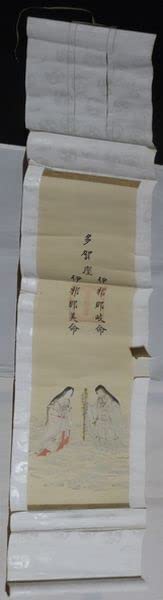 多賀座
伊邪那岐命
伊邪那美命